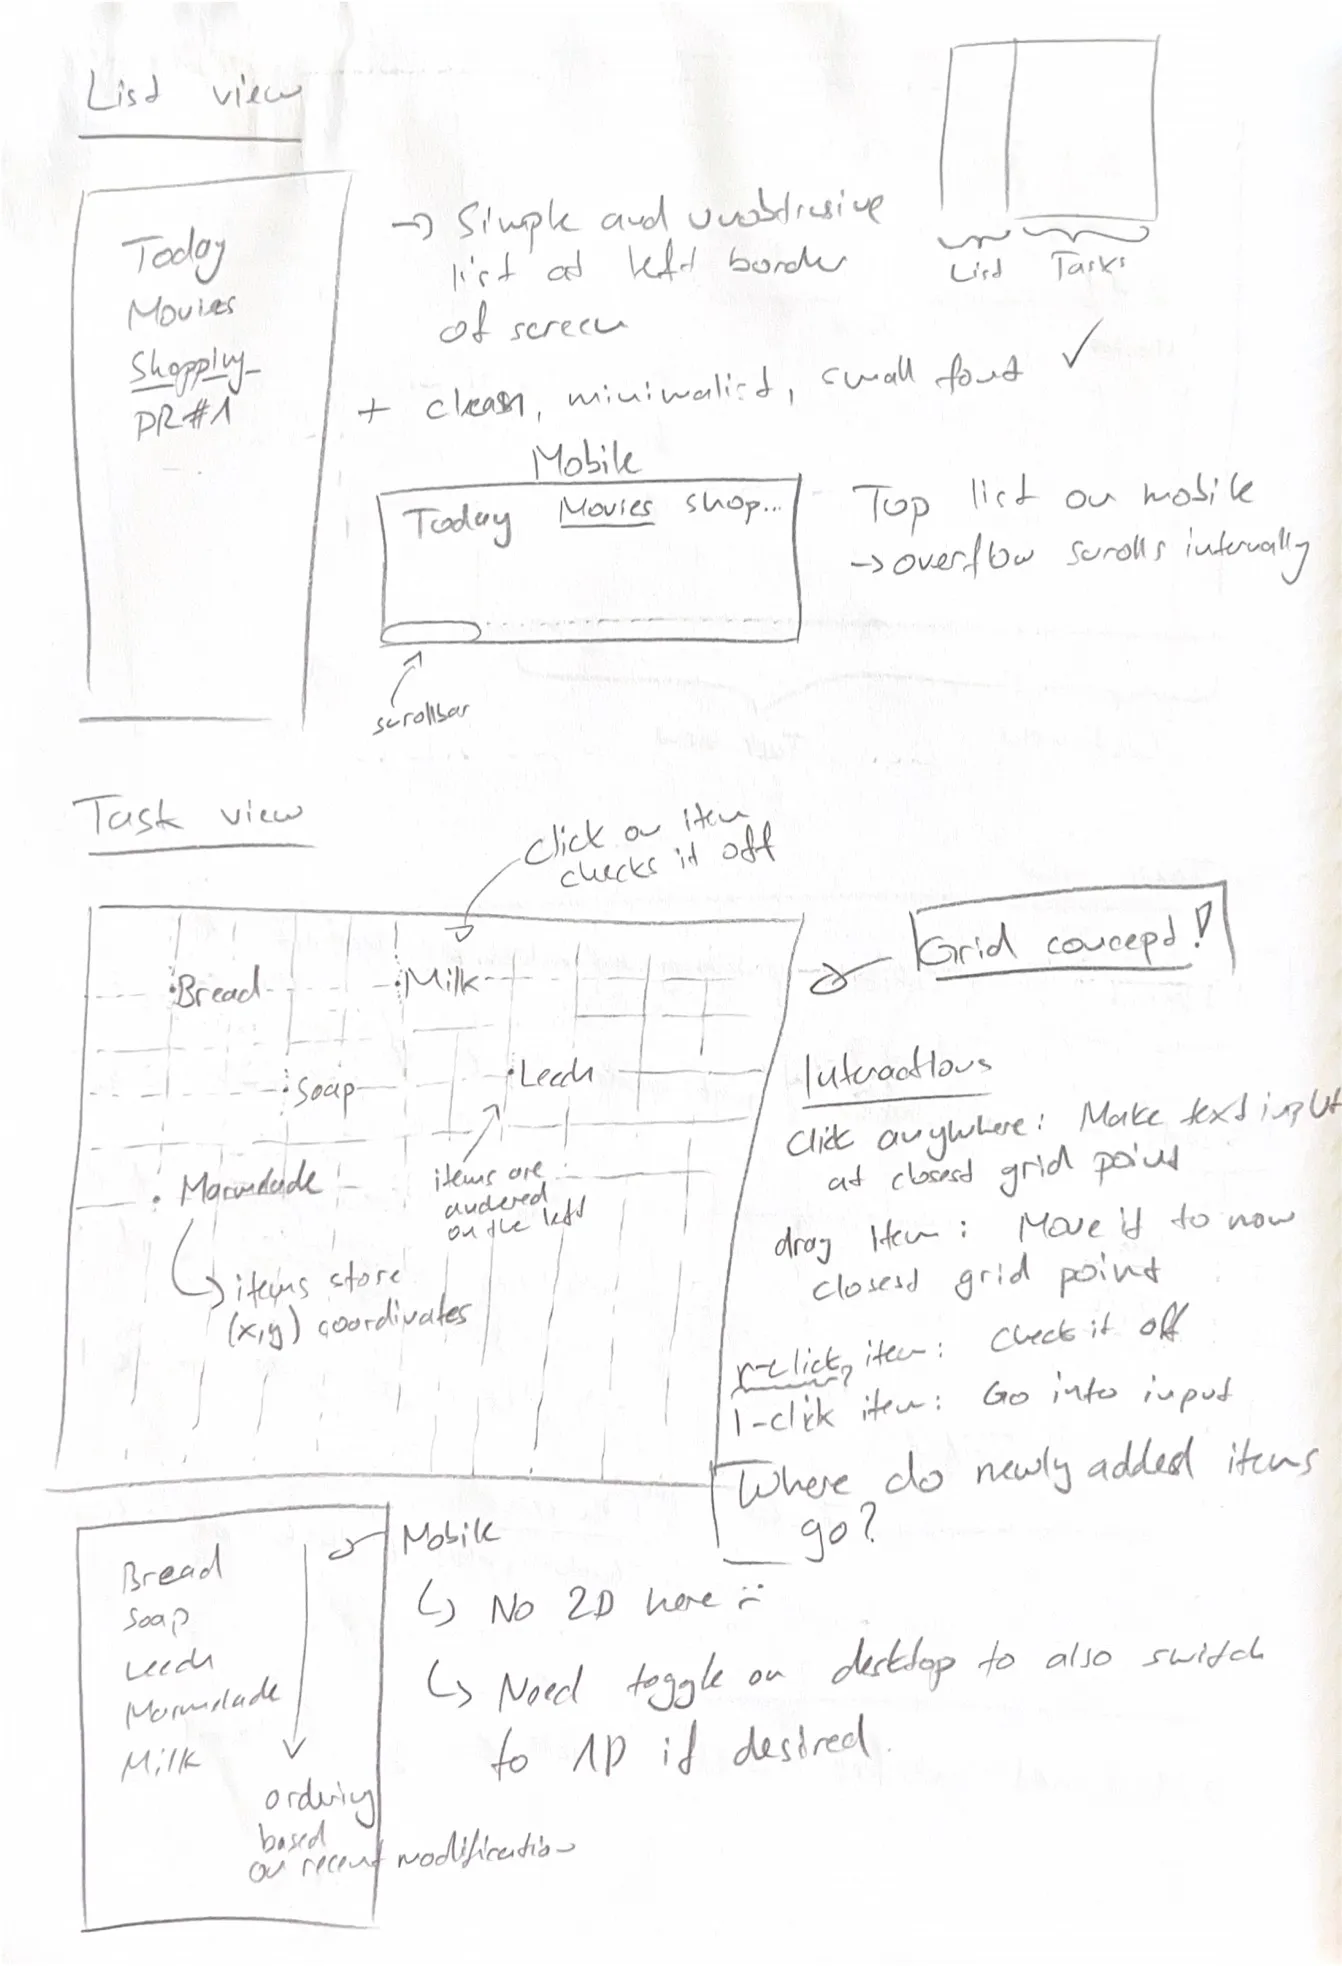 List view
Today
Movies
Shopping
PR#1
→ Simple and unobtrusive
list at left border
of screen
+ clean, minimalist, small font ✓
List Tasks
Mobile
Today Movies shop...
scrollbar
Top list on mobile
→ overflow scrolls internally
Task view
click on item
checks it off
Bread
Milk
Soap
Leech
Marmelade
items are
anchored
on the left
items store
(x,y) coordinates
Grid concept!
Interactions
Click anywhere: Make text input
at closest grid point
drag item: Move it to now
closest grid point
r-click item: Check it off
l-click item: Go into input
Where do newly added items
go?
Bread
Soap
Leech
Marmelade
Milk
ordering
based
on recent modification
Mobile
↳ No 2D here :(
↳ Need toggle on desktop to also switch
to 1D if desired.